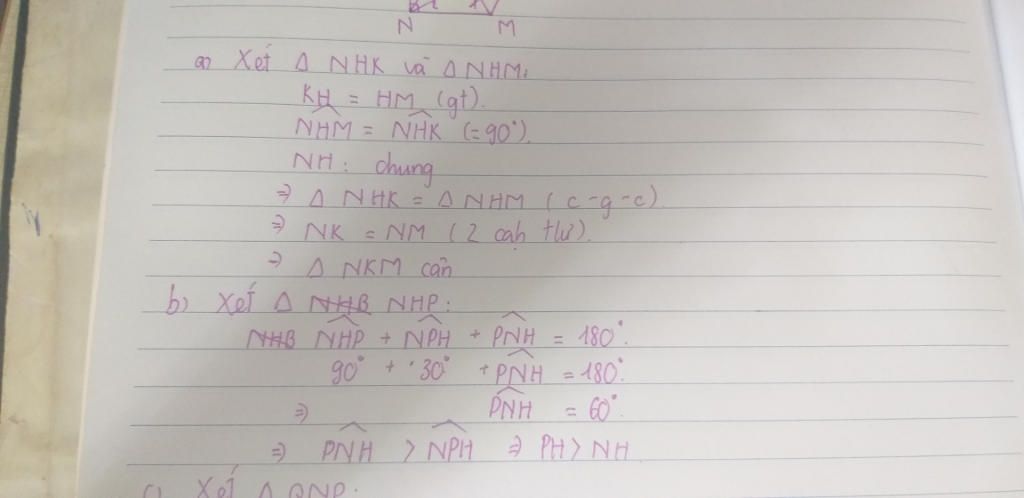 N M
a) Xét Δ NHK và Δ NHM:
KH = HM (gt).
NHM = NHK (=90°).
NH: chung
⇒ Δ NHK = Δ NHM (c-g-c)
⇒ NK = NM (2 cạh tlư).
⇒ Δ NKM cân
b) Xét Δ NHB NHP:
NHB NHP + NPH + PNH = 180°.
90° + 30° + PNH = 180°.
⇒ PNH = 60°.
⇒ PNH > NPH ⇒ PH > NH
c) Xét Δ QNP: